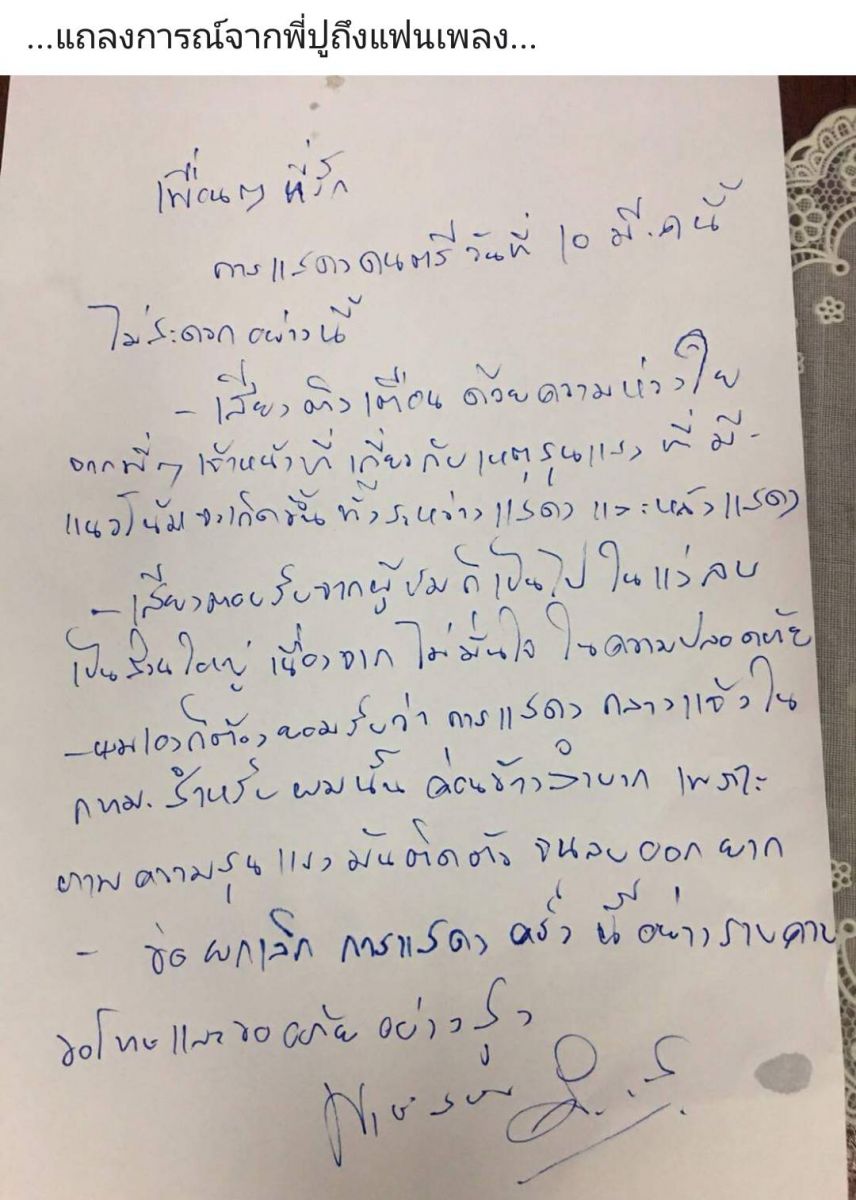 ...แถลงการณ์จากพี่ปูถึงแฟนเพลง...
เพื่อนๆ ที่รัก
การแสดงดนตรีวันที่ 10 มี.คนี้
ไม่สะดวกอย่างนี้
- เสียงติงเตือน ด้วยความห่วงใย
จากพี่ๆ เจ้าหน้าที่ เกี่ยวกับเหตุรุนแรง ที่มี-
แนวโน้มจะเกิดขึ้น ทั้งระหว่างแสดง และหลังแสดง
- เสียงตอบรับจากผู้ชมก็เป็นไปในแง่ลบ
เป็นส่วนใหญ่ เนื่องจาก ไม่มั่นใจ ในความปลอดภัย
- ผมเองก็ต้องยอมรับว่า การแสดง กลางแจ้งใน
กทม. สำหรับผมนั้น ค่อนข้างลำบาก เพราะ
ภาพความรุนแรงมันติดตัว จนลบออกยาก
- ขอยกเลิก การแสดง ครั้งนี้อย่างราบคาบ
ขอโทษและขออภัยอย่างสูง